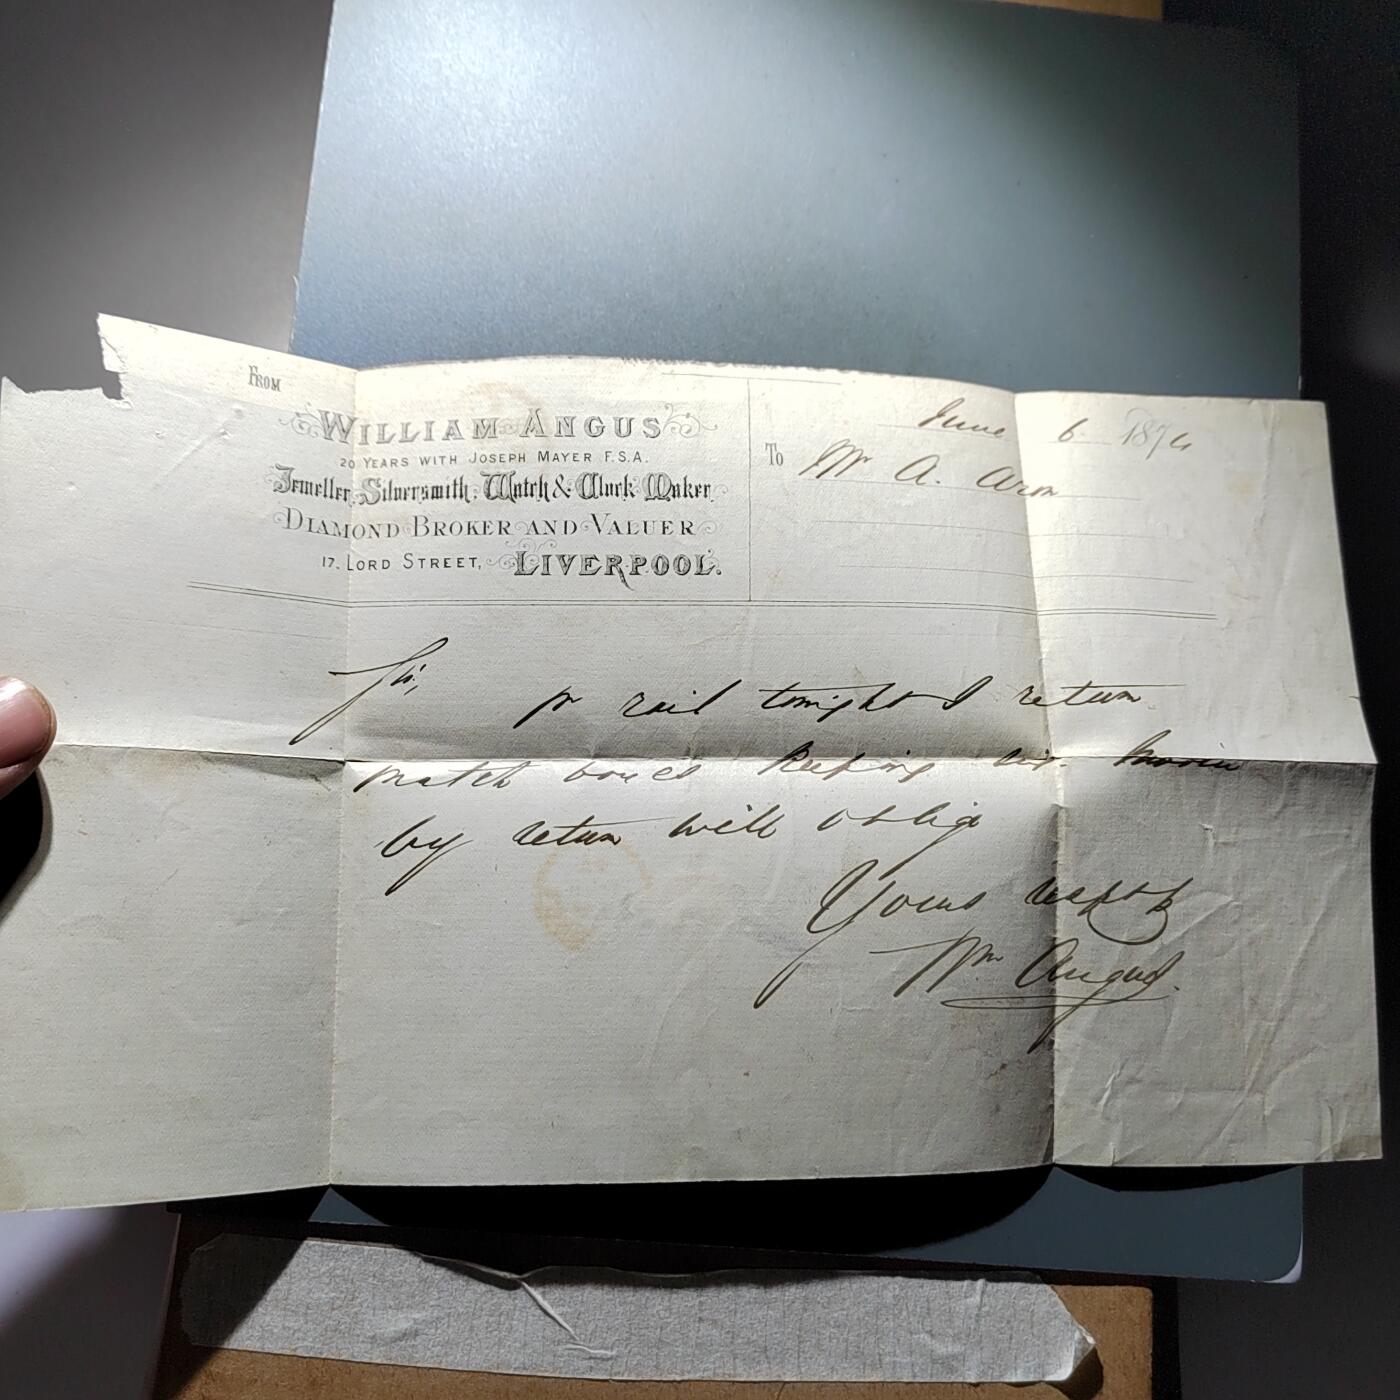 FROM
WILLIAM ANGUS
20 YEARS WITH JOSEPH MAYER F.S.A.
Jeweller, Silversmith, Watch & Clock Maker
DIAMOND BROKER AND VALUER
17. LORD STREET, LIVERPOOL.
June 6. 187
To Mr A. Aron
Sir,
pr rail tonight I return
match boxes keeping six.
by return will oblige
Yours
Wm Angus.